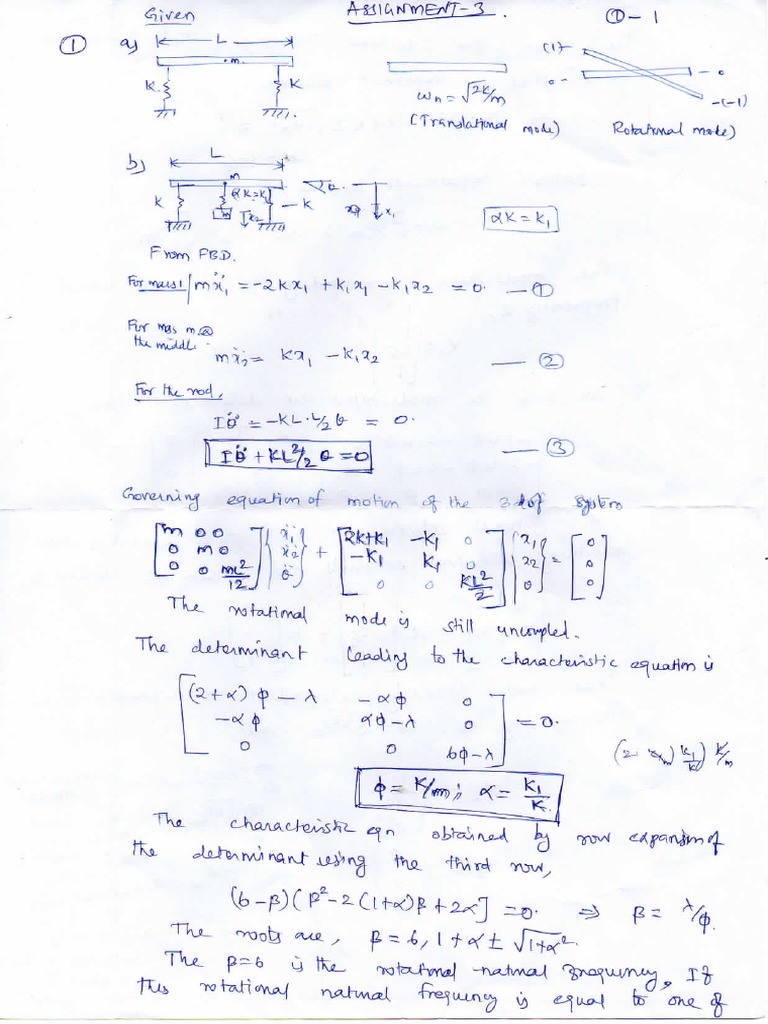 Given
ASSIGNMENT-3.
①-1
① a)
L
m
K
K
ωn = √2K/m
(Translational mode)
(1)
0
0
(-1)
Rotational mode)
b)
L
m
K
αK=K1
m
x2
K
θ
x1
αK = K1
From FBD.
For mass1 / mẍ1 = -2Kx1 + K1x1 - K1x2 = 0. — ①
For mass m @
the middle -
mẍ2 = Kx1 - K1x2 — ②
For the rod,
Iθ̈ = -KL·L/2 θ = 0.
Iθ̈ + KL²/2 θ = 0 — ③
Governing equation of motion of the 3 dof system
[m 0 0; 0 m 0; 0 0 mL²/12] {ẍ1; ẍ2; θ̈} + [2K+K1 -K1 0; -K1 K1 0; 0 0 KL²/2] {x1; x2; θ} = [0; 0; 0]
The rotational mode is still uncoupled.
The determinant leading to the characteristic equation is
[(2+α)φ-λ -αφ 0
-αφ αφ-λ 0
0 0 6φ-λ] = 0.
φ = K/m; α = K1/K.
The characteristic eqn obtained by row expansion of
the determinant using the third row,
(6-β)(β²-2(1+α)β+2α] = 0. ⇒ β = λ/φ.
The roots are, β = 6, 1+α ± √1+α².
The β=6 is the rotational natural frequency. If
this rotational natural frequency is equal to one of